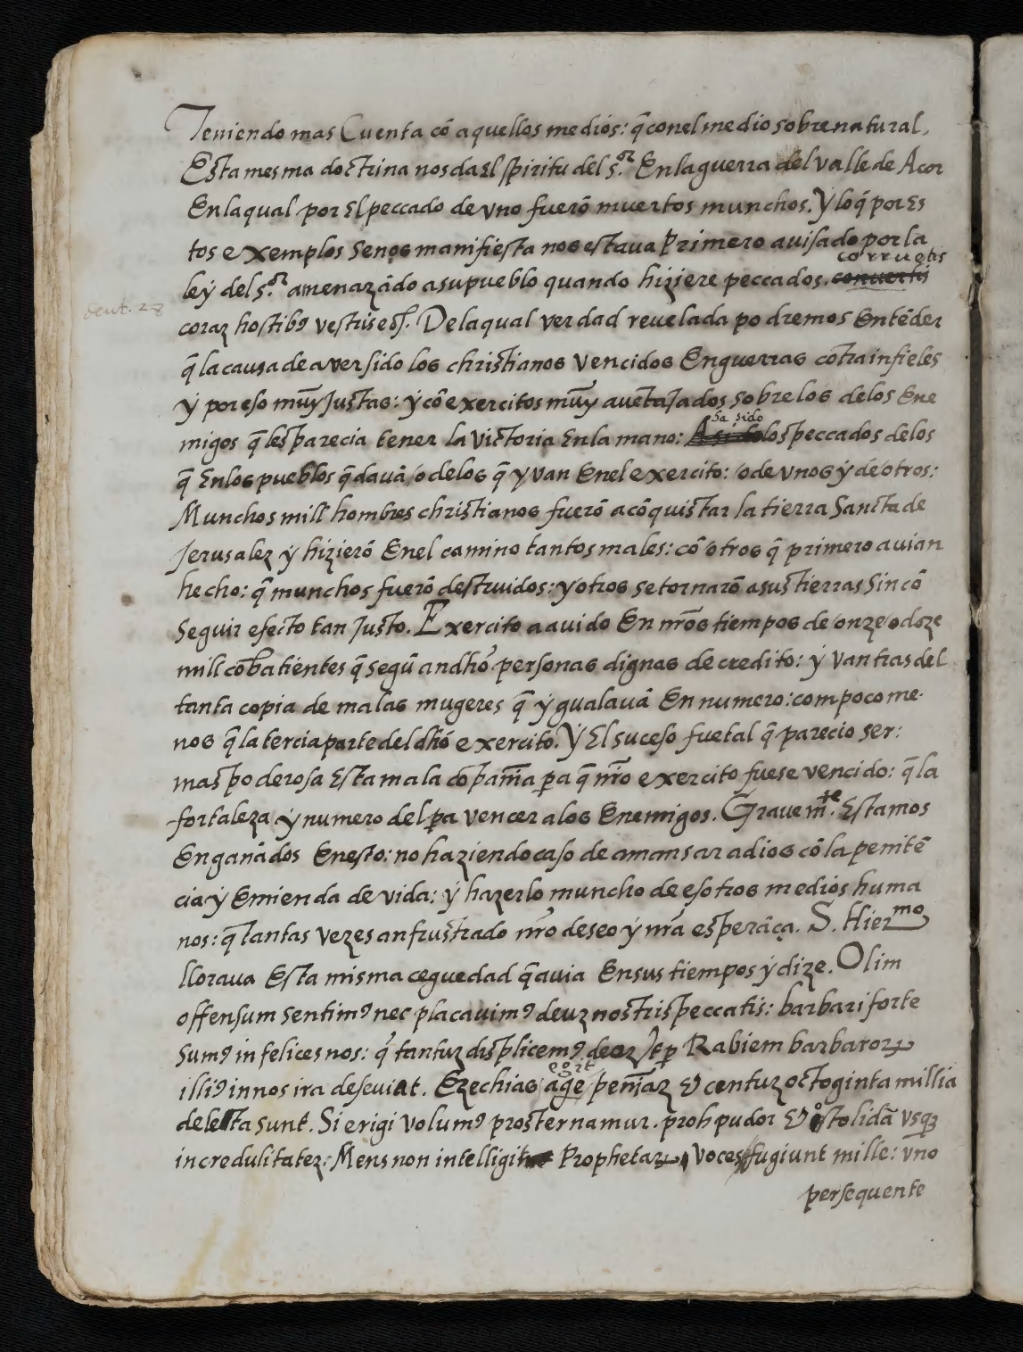 Teniendo mas Cuenta cō aquellos medios: q̄ conel medio sobrenatural.
Esta mesma doctrina nos da El spiritu del s.ᵒʳ En la guerra del valle de Acor
En la qual por El peccado de vno fuerō muertos munchos. Y lo q̄ por Es
tos exemplos se nos manifiesta nos estava Primero avisado por la
ley del s.ᵒʳ amenazādo a su pueblo quando hiziere peccados. corruetis
deut. 28
coraz hostibꝰ vestris etc. De la qual verdad revelada podremos Entēder
q̄ la causa de aver sido los christianos vencidos En guerras cōtra infieles
y por eso muy Justas: y cō exercitos muy avētajados sobre los de los Ene
migos q̄ les parecia tener la victoria En la mano: ha sido los peccados de los
q̄ En los pueblos q̄davā / o de los q̄ yvan En el exercito: o de vnos y de otros:
Munchos mill hombres christianos fuerō a cōquistar la tierra Sancta de
Jerusalez y hizierō En el camino tantos males: cō otros q̄ primero avian
hecho: q̄ munchos fuerō destruidos: y otros se tornarō a sus tierras Sin cō
seguir efecto tan Justo. Exercito a avido En nr̄os tiempos de onze o doze
mill cōbatientes q̄ segū an dh̄o personas dignas de credito: y van tras del
tanta copia de malas mugeres q̄ ygualavā En numero: com poco me
nos q̄ la tercia parte del dh̄o exercito. Y El suceso fue tal q̄ parecio ser:
mas poderosa Esta mala cōpan̄ia pa q̄ nr̄o exercito fuese vencido: q̄ la
fortaleza y numero del pa vencer a los Enemigos. Gravem.ᵗᵉ Estamos
Engan̄ados En esto: no haziendo caso de amansar a dios cō la penitē
cia y Emienda de vida: y hazerlo muncho de esotros medios huma
nos: q̄ tantas vezes an frustrado nr̄o deseo y nr̄a esperāça. S. Hierᵐᵒ
llorava Esta misma ceguedad q̄ avia En sus tiempos y dize. Olim
offensum sentimꝰ nec placavimꝰ deuz nostris peccatis: barbari forte
sumꝰ infelices nos: q̄ tantuz displicemꝰ deo / vt p̲ Rabiem barbaroꝝ
illiꝰ in nos ira deseviat. Ezechias egit penit̄iaz & centuz octoginta millia
deleta sunt. Si erigi volumꝰ prosternamur. proh pudor & stolidā vsqꝫ
incredulitatez: Mens non intelligit Prophetaꝝ voces / fugiunt mille: vno
persequente